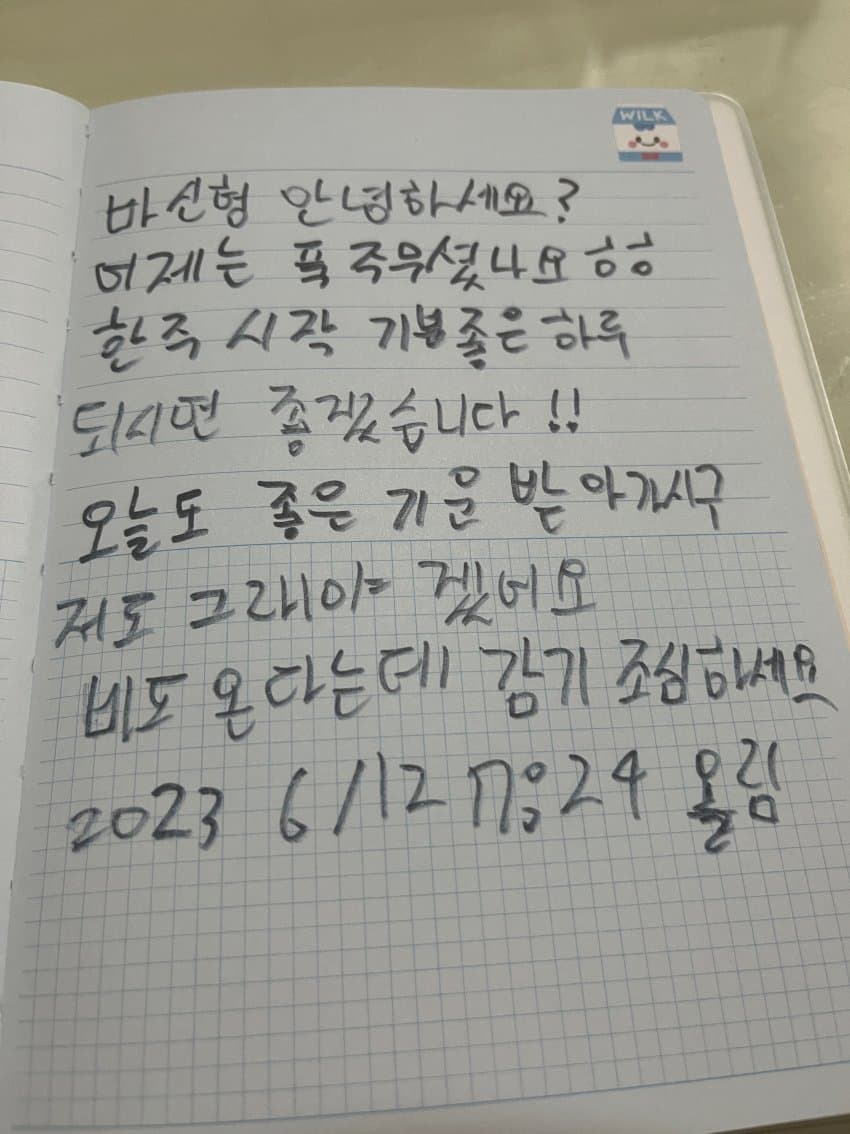 WILK
바신형 안녕하세요?
어제는 푹 주무셨나요 ㅎㅎ
한주 시작 기분좋은하루
되시면 좋겠습니다!!
오늘도 좋은 기운 받아가시구
저도 그래야 겠어요
비도 온다는데 감기 조심하세요
2023 6/12 7:24 올림